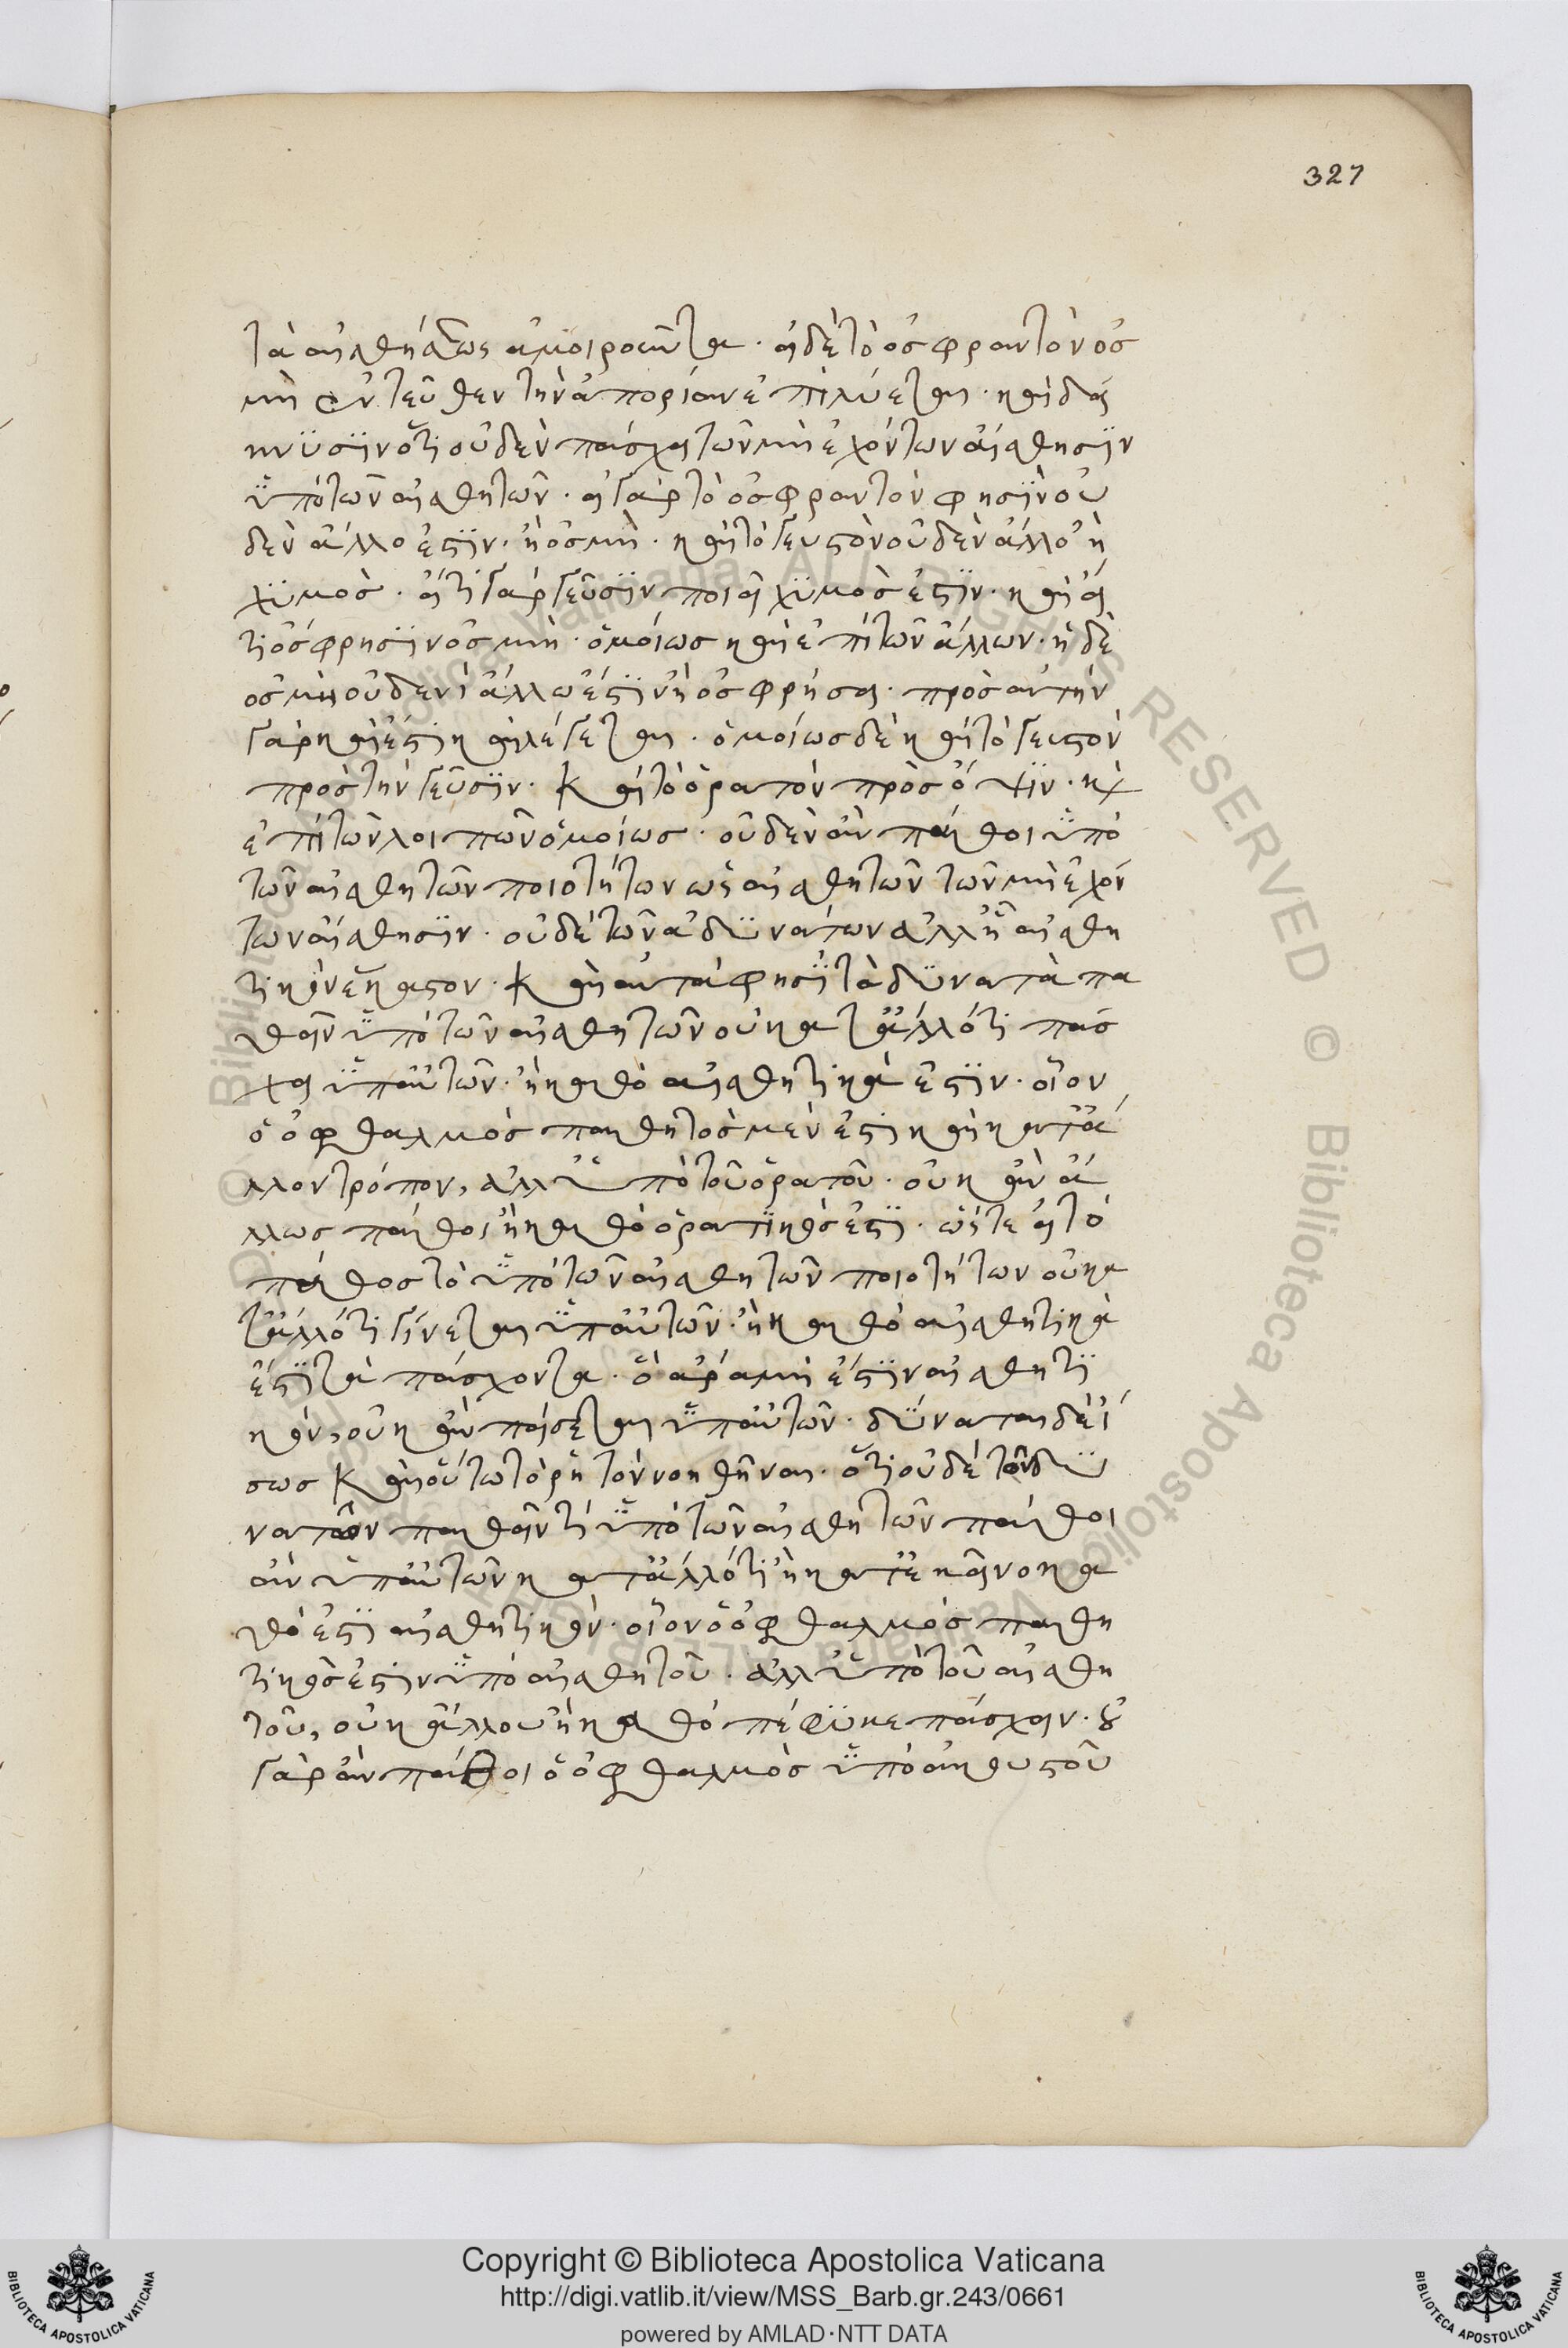 327
τὰ αἰσθήσεως ἀμοιροῦντα. εἰ δὲ τὸ ὀσφραντὸν ὀσ
μὴ ἐντεῦθεν τὴν ἀπορίαν ἐπιλύεται. καὶ δεί
κνυσιν ὅτι οὐδὲν πάσχει τῶν μὴ ἐχόντων αἴσθησιν
ὑπὸ τῶν αἰσθητῶν. εἰ γὰρ τὸ ὀσφραντὸν φησὶν οὐ
δὲν ἄλλο ἐστὶν. ἢ ὀσμὴ. καὶ τὸ γευστὸν οὐδὲν ἄλλο ἢ
χυμὸς. εἴ τι γὰρ γεῦσιν ποιεῖ χυμὸς ἐστιν. καὶ εἴ
τι ὄσφρησιν ὀσμὴ. ὁμοίως καὶ ἐπὶ τῶν ἄλλων. ἡ δὲ
ὀσμὴ οὐδενὶ ἄλλω ἐστὶν ἢ ὀσφρήσει. πρὸς αὐτὴν
γὰρ καὶ ἐστι καὶ λέγεται. ὁμοίως δὲ καὶ τὸ γευστὸν
πρὸς τὴν γεῦσιν. καὶ τὸ ὁρατὸν πρὸς ὄψιν. καὶ
ἐπὶ τῶν λοιπῶν ὁμοίως. οὐδὲν ἂν πάθοι ὑπὸ
τῶν αἰσθητῶν ποιοτήτων ὡς αἰσθητῶν τῶν μὴ ἐχόν
των αἴσθησιν. οὐδὲ τῶν ἀδυνάτων ἀλλ' ᾗ αἰσθη
τικὸν ἕκαστον. καὶ αὐτὰ φησὶ τὰ δυνατὰ πα
θεῖν ὑπὸ τῶν αἰσθητῶν οὐ κατ' ἄλλό τι πάσ
χει ὑπ' αὐτῶν. ἢ καθὸ αἰσθητικά ἐστιν. οἷον
ὁ ὀφθαλμὸς παθητὸς μὲν ἐστὶ καὶ κατ' ἄ
λλον τρόπον, ἀλλ' ὑπὸ τοῦ ὁρατοῦ. οὐκ ἂν ἄ
λλως πάθοι ἢ καθὸ ὁρατικός ἐστι. ὥστε εἰ τὸ
πάθος τὸ ὑπὸ τῶν αἰσθητῶν ποιοτήτων οὐ κα
τ' ἄλλό τι γίνεται ὑπ' αὐτῶν. ἢ καθὸ αἰσθητικά
ἐστι τὰ πάσχοντα. ὃ ἄρα μὴ ἐστὶν αἰσθητι
κόν, οὐκ ἂν πείσεται ὑπ' αὐτῶν. δύναται δὲ ἴ
σως καὶ οὕτω τὸ ῥητὸν νοηθῆναι. ὅτι οὐδὲ τῶν δυ
νατῶν παθεῖν τι ὑπὸ τῶν αἰσθητῶν πάθοι
ἂν ὑπ' αὐτῶν κατ' ἄλλό τι ἢ κατ' ἐκεῖνο κα
θὸ ἐστὶ αἰσθητικόν. οἷον ὁ ὀφθαλμὸς παθη
τικός ἐστιν ὑπὸ αἰσθητοῦ. ἀλλ' ὑπὸ τοῦ αἰσθη
τοῦ, οὐκ ἄλλου ἢ καθὸ πέφυκε πάσχειν. οὐ
γὰρ ἂν πάθοι ὁ ὀφθαλμὸς ὑπὸ ἀκουστοῦ
Copyright © Biblioteca Apostolica Vaticana
http://digi.vatlib.it/view/MSS_Barb.gr.243/0661
powered by AMLAD·NTT DATA